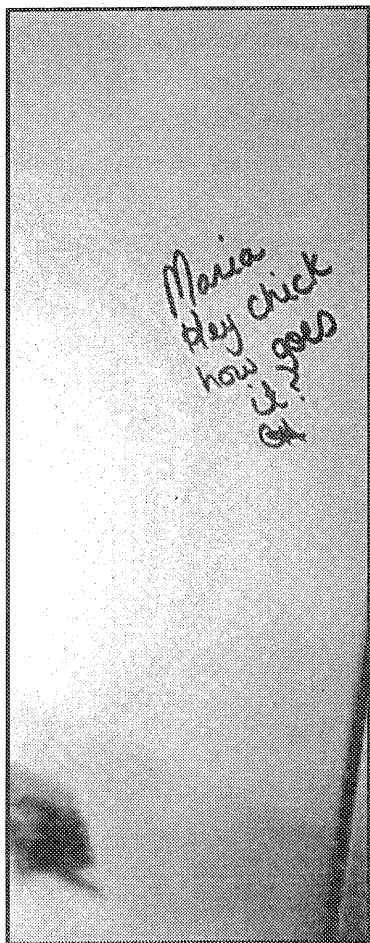 Maria
Hey chick
how goes
it